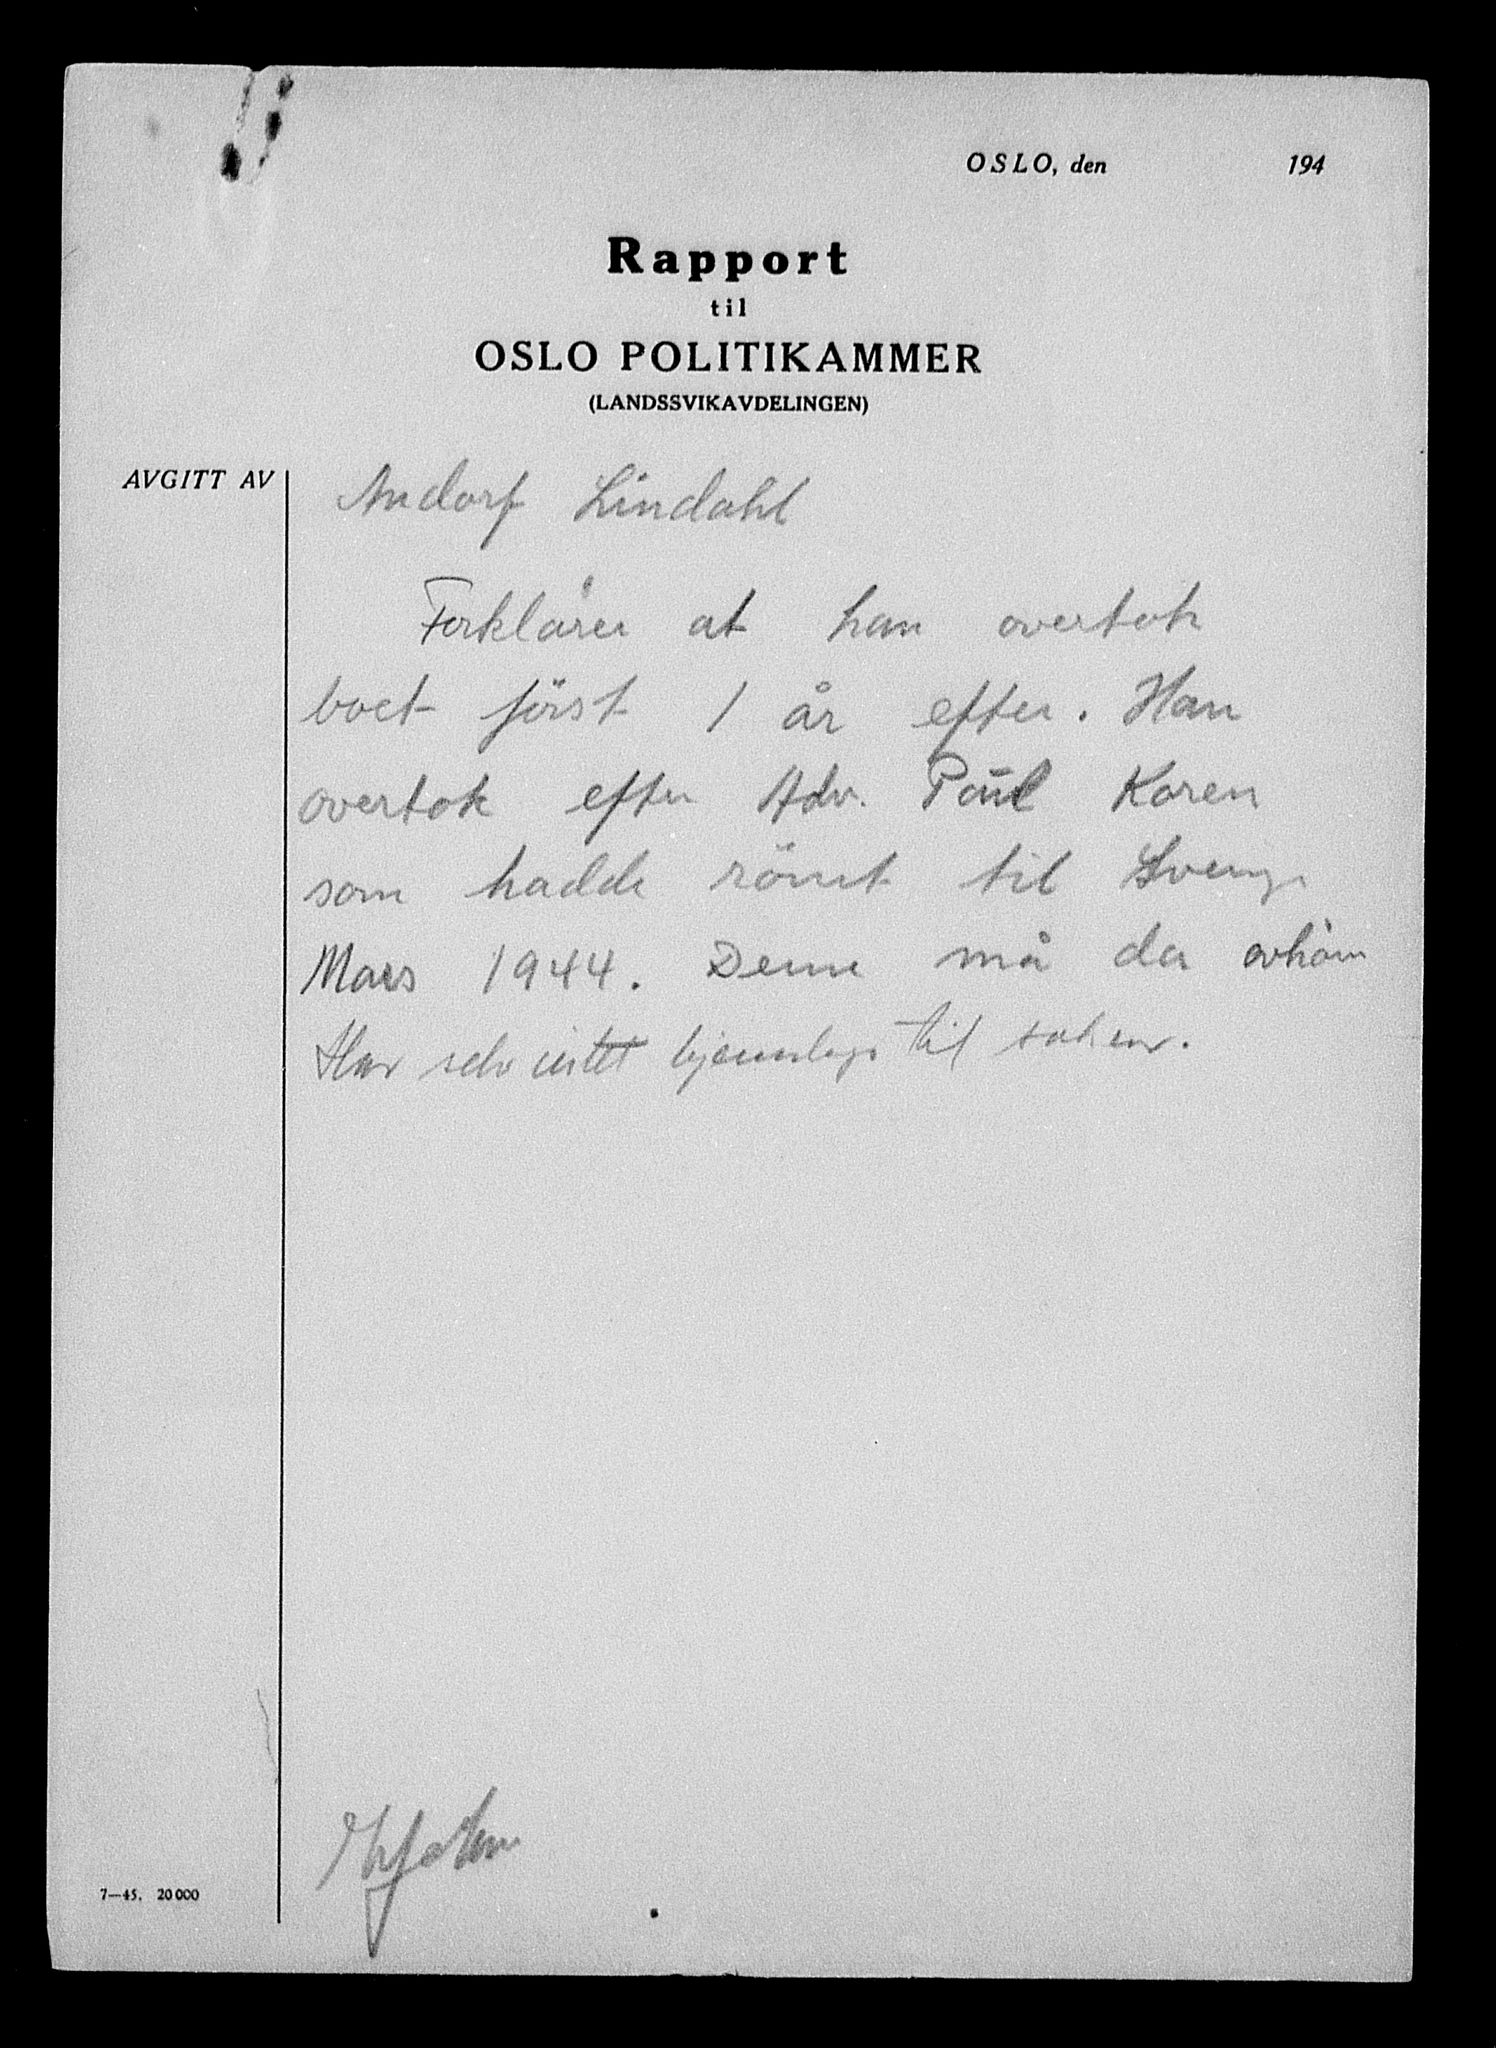 OSLO, den 194
Rapport
til
OSLO POLITIKAMMER
(LANDSSVIKAVDELINGEN)
AVGITT AV
Andorf Lindahl
Forklarer at han overtok
boet först 1 år efter. Han
overtok efter Adv. Paul Koren
som hadde römt til
Mars 1944. Denne må da
Har selv intet til saken.
7—45. 20 000